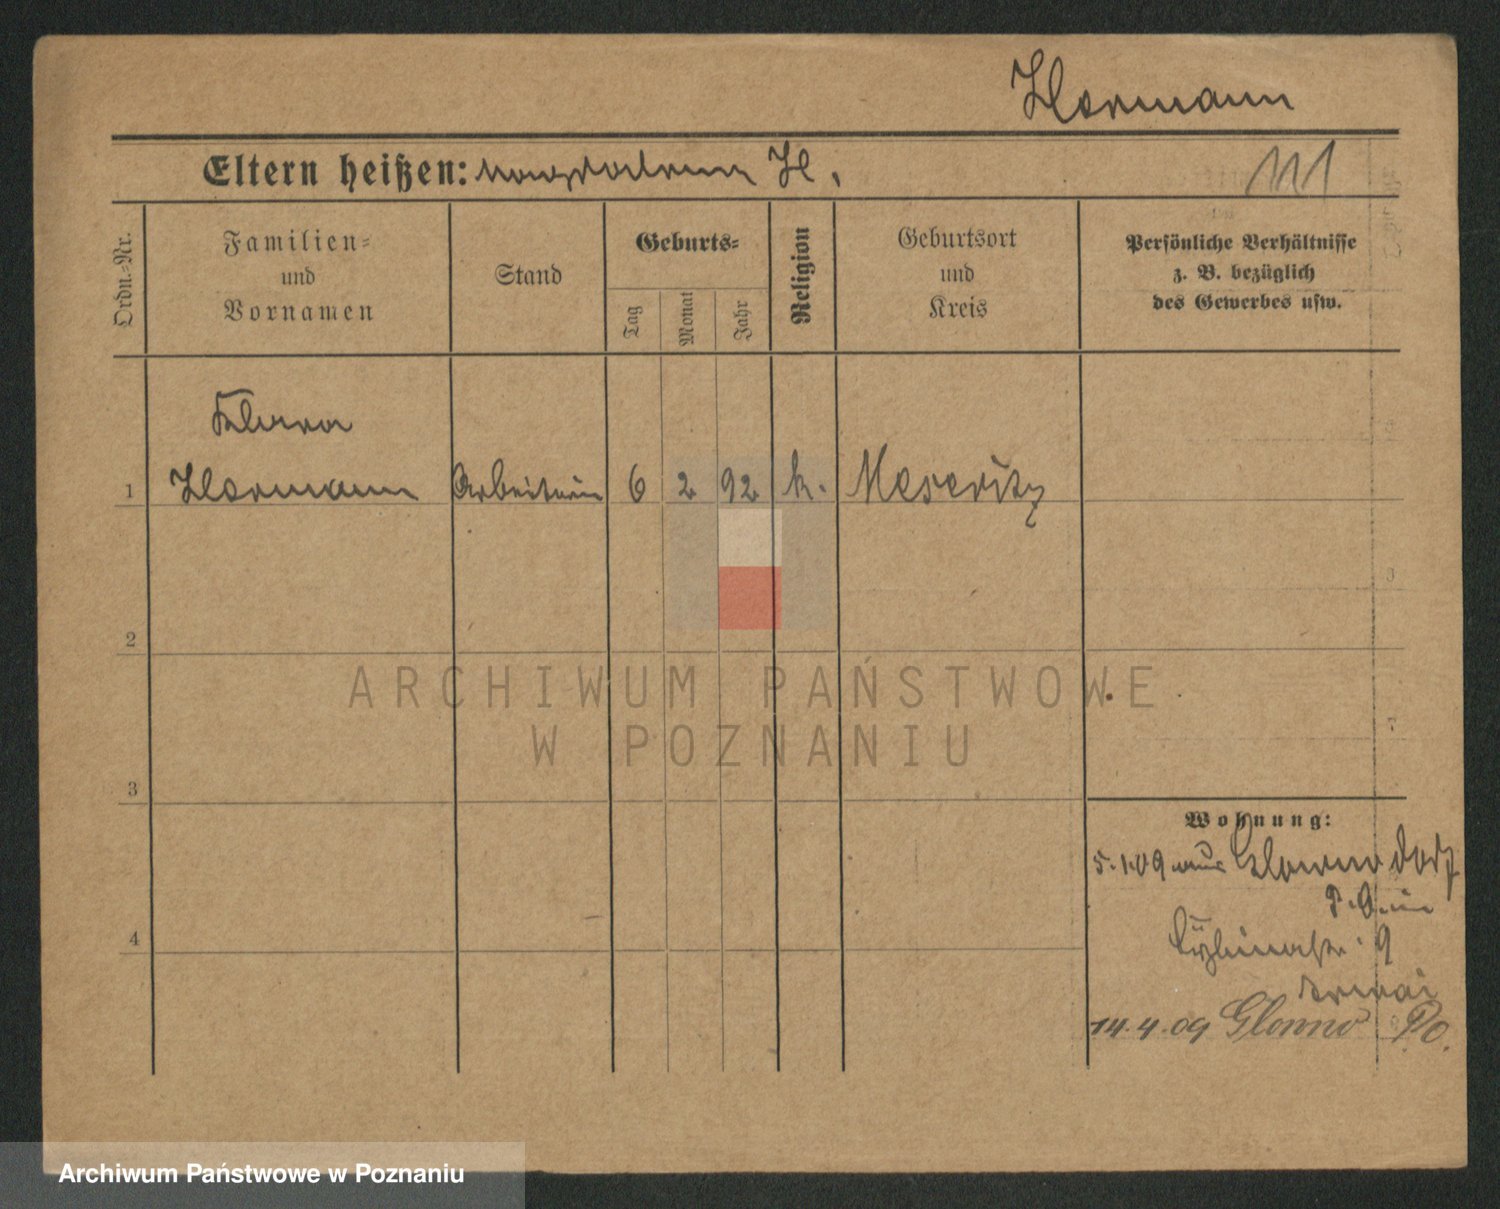 Hermann
Eltern heißen: Magdalena H.
111
Ordn.-Nr.
Familien-
und
Vornamen
Stand
Geburts-
Tag
Monat
Jahr
Religion
Geburtsort
und
Kreis
Persönliche Verhältnisse
z. B. bezüglich
des Gewerbes usw.
Klara
1 Hermann Arbeiterin 6 2 92 k. Meseritz
2
3
4
Wohnung:
5.1.09 aus Glowno Dorf
P. O. in
9
14.4.09 Glowno P. O.
ARCHIWUM PAŃSTWOWE
W POZNANIU
Archiwum Państwowe w Poznaniu